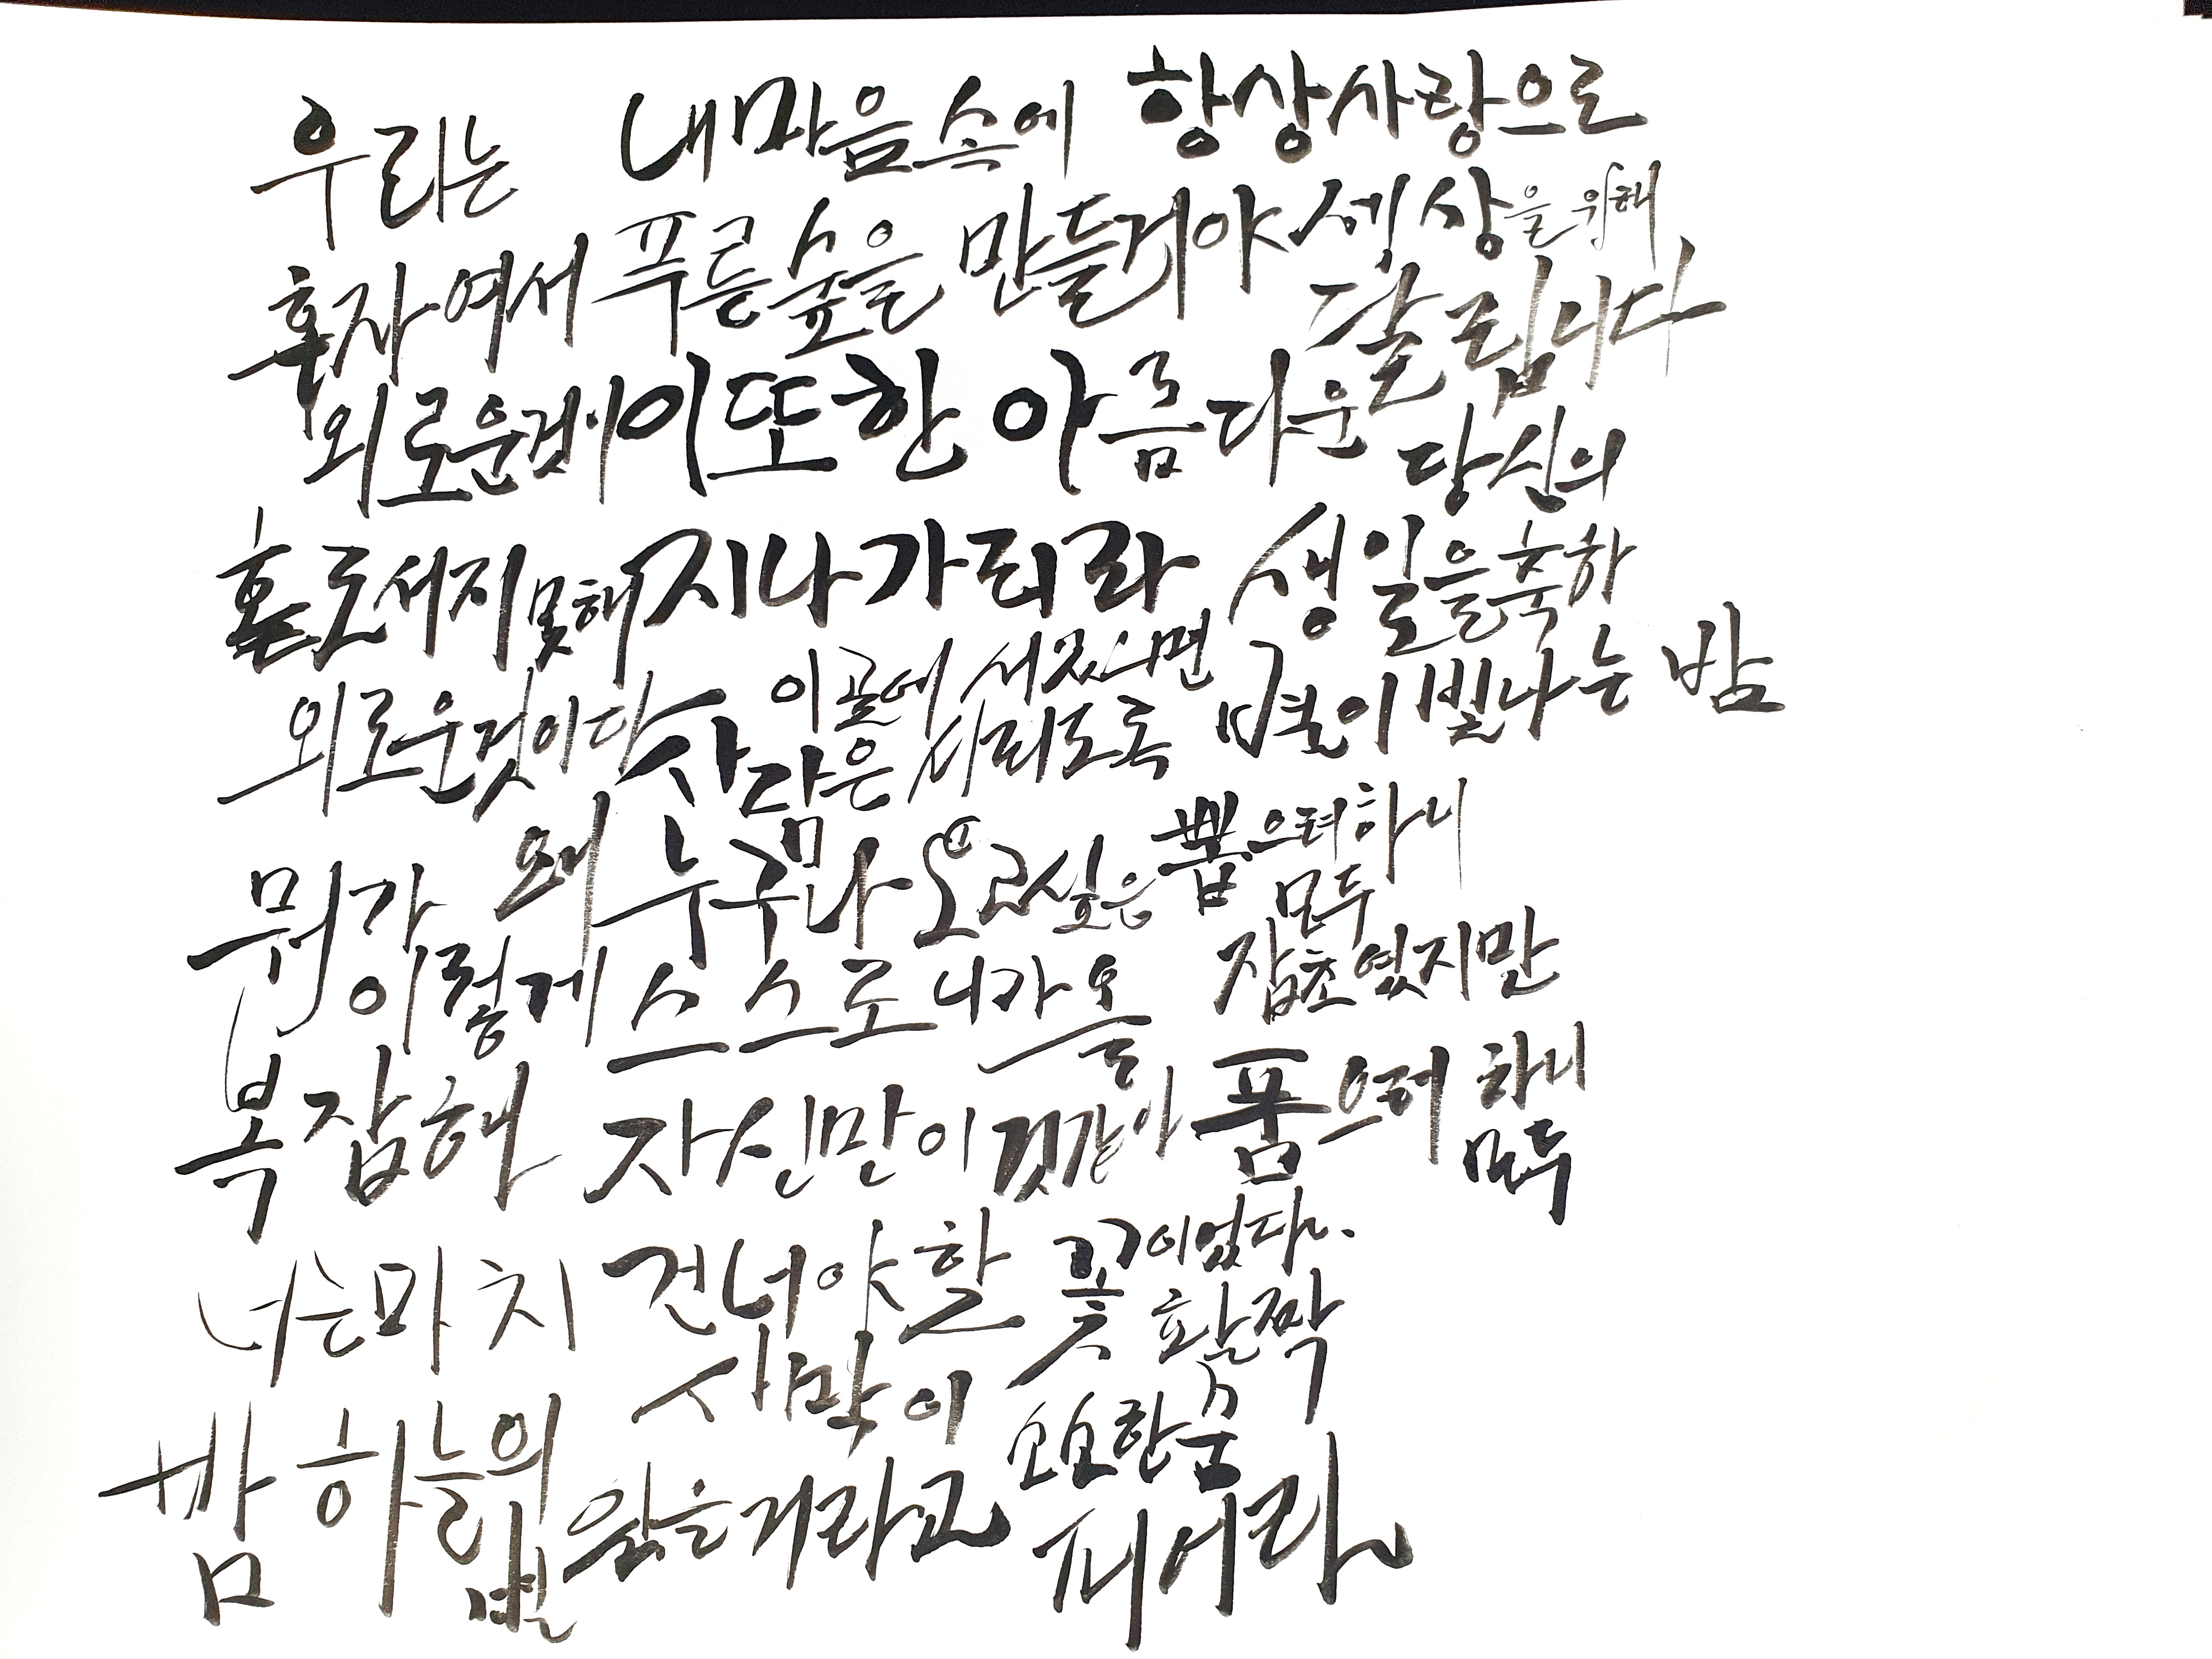 우리는
혼자여서
외로운것이
홀로서지못해
외로운것이다
뭐가 왜
이렇게
복잡해
너는마치
밤하늘의
별
내마음속에
푸른숲을 만들거야
이또한
지나가리라
사람은
누구나
스스로
자신만이
건너야할
사막이
있는거라고
항상사랑으로
세상을위해
달립니다
아름다운
당신의
생일을축하
별이빛나는 밤
이꼴에
시리도록
고싶은
니가올
것같아
뽑으려하니
모두
잡초였지만
품으려 하니
모두
꽃이었다.
활짝
피어라